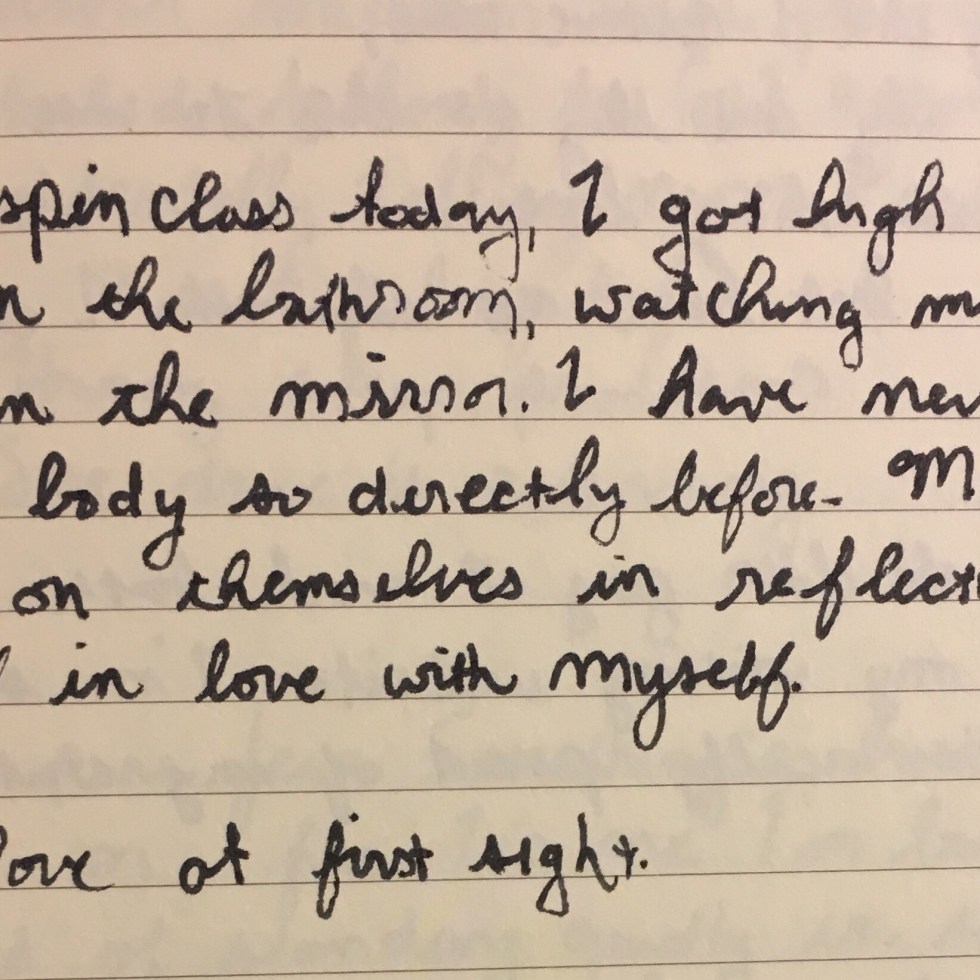 spin class today, I got high
n the bathroom, watching m
n the mirror. I have nev
body so directly before. M
on themselves in reflect
in love with myself.
love at first sight.